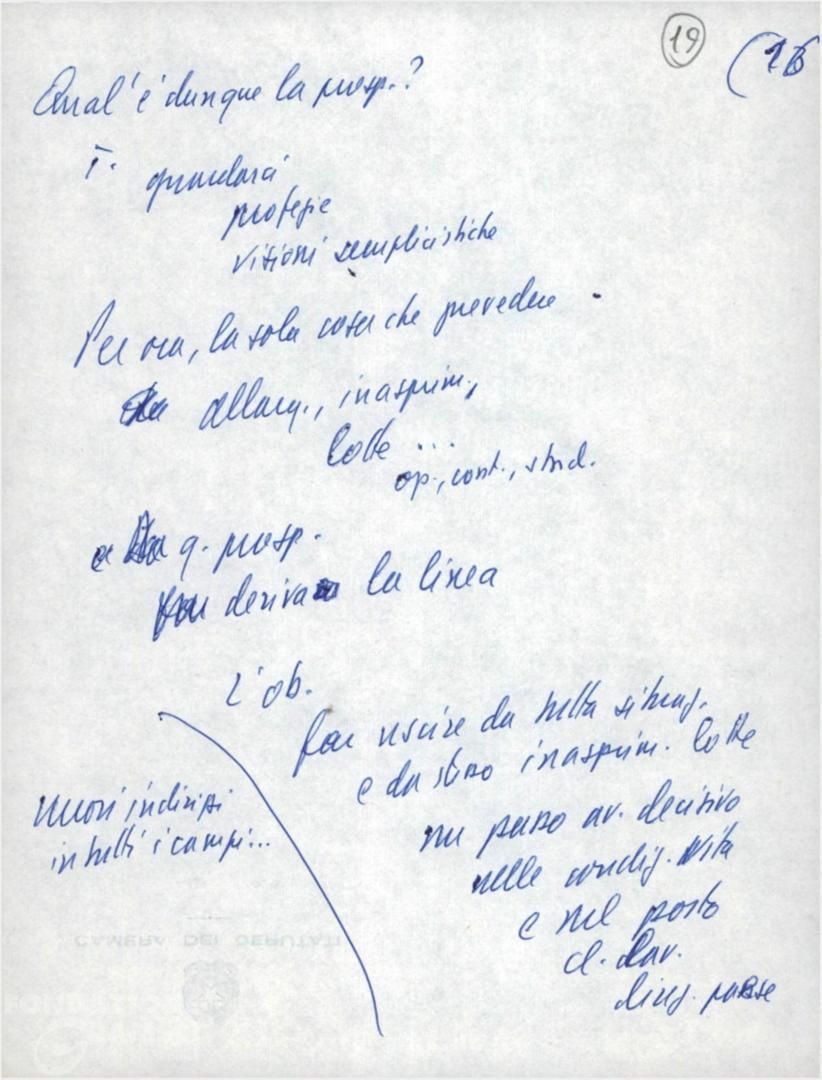 19
(16
Qual'è dunque la prosp.?
guardarci
profezie
visioni semplicistiche
Per ora, la sola cosa che prevedere
allarg., inasprim.,
lotte ...
op., cont., stud.
e q. prosp.
far deriva la linea
L'ob.
far uscire da tutta situaz.
e da stesso inasprim. lotte
un passo av. decisivo
nelle condiz. vita
e nel posto
cl. lav.
direz. paese
nuovi indirizzi
in tutti i campi...
CAMERA DEI DEPUTATI